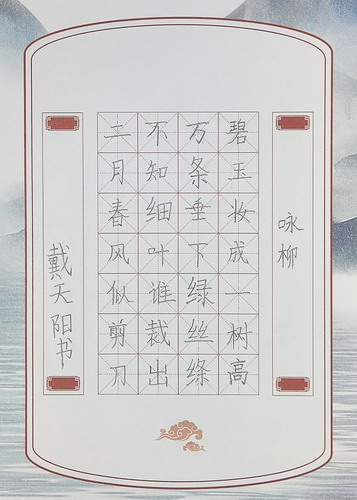 咏柳
碧玉妆成一树高
万条垂下绿丝绦
不知细叶谁裁出
二月春风似剪刀
戴天阳书